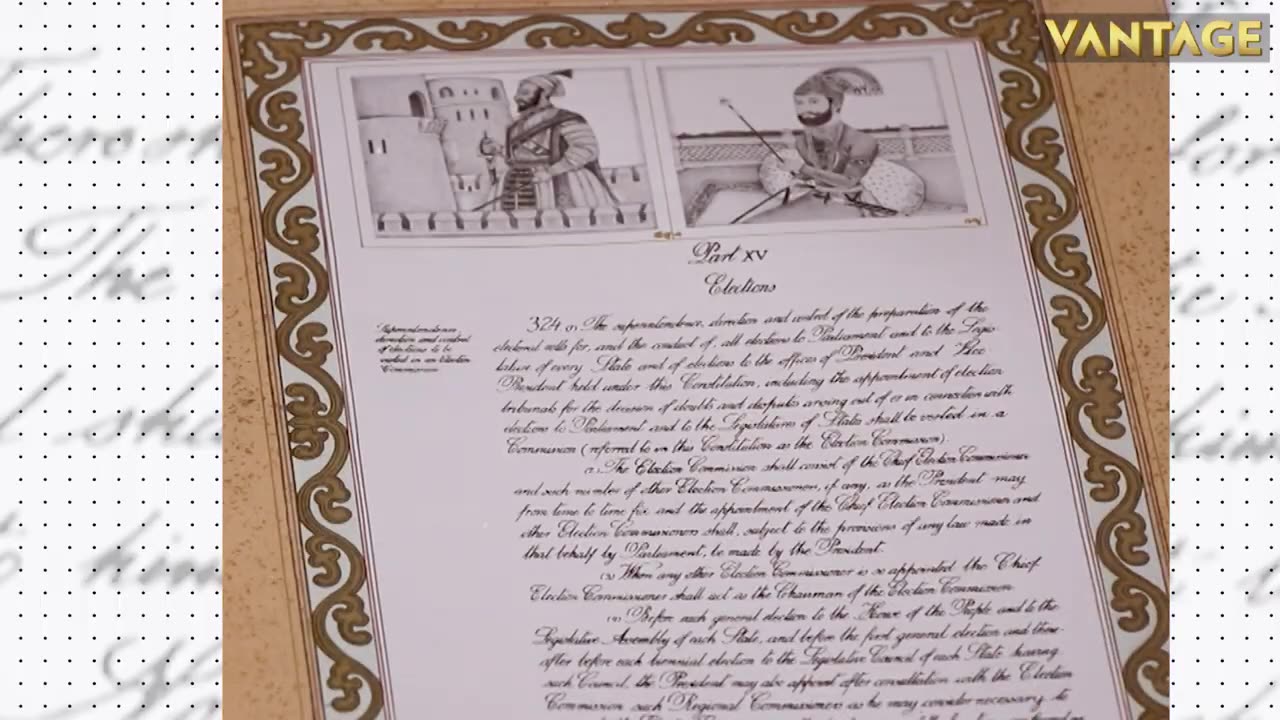 VANTAGE
Part XV
Elections
Superintendence,
direction and control
of elections to be
vested in an Election
Commission
324 (1) The superintendence, direction and control of the preparation of the
electoral rolls for, and the conduct of, all elections to Parliament and to the Legis-
lature of every State and of elections to the offices of President and Vice
President held under this Constitution, including the appointment of election
tribunals for the decision of doubts and disputes arising out of or in connection with
elections to Parliament and to the Legislatures of States shall be vested in a
Commission (referred to in this Constitution as the Election Commission).
The Election Commission shall consist of the Chief Election Commissioner
and such number of other Election Commissioners, if any, as the President may
from time to time fix and the appointment of the Chief Election Commissioner and
other Election Commissioners shall, subject to the provisions of any law made in
that behalf by Parliament, be made by the President.
(3) When any other Election Commissioner is so appointed the Chief
Election Commissioner shall act as the Chairman of the Election Commission
(4) Before each general election to the House of the People and to the
Legislative Assembly of each State, and before the first general election and there-
after before each biennial election to the Legislative Council of each State having
such Council, the President may also appoint after consultation with the Election
Commission such Regional Commissioners as he may consider necessary to
The